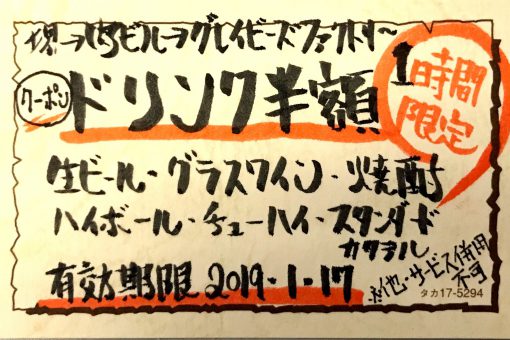 グレイビーズファクトリー
クーポン
ドリンク半額
1時間
限定
生ビール・グラスワイン・焼酎
ハイボール・チューハイ・スタンダード
カクテル
有効期限 2019・1・17
※他・サービス併用
不可
タカ17-5294